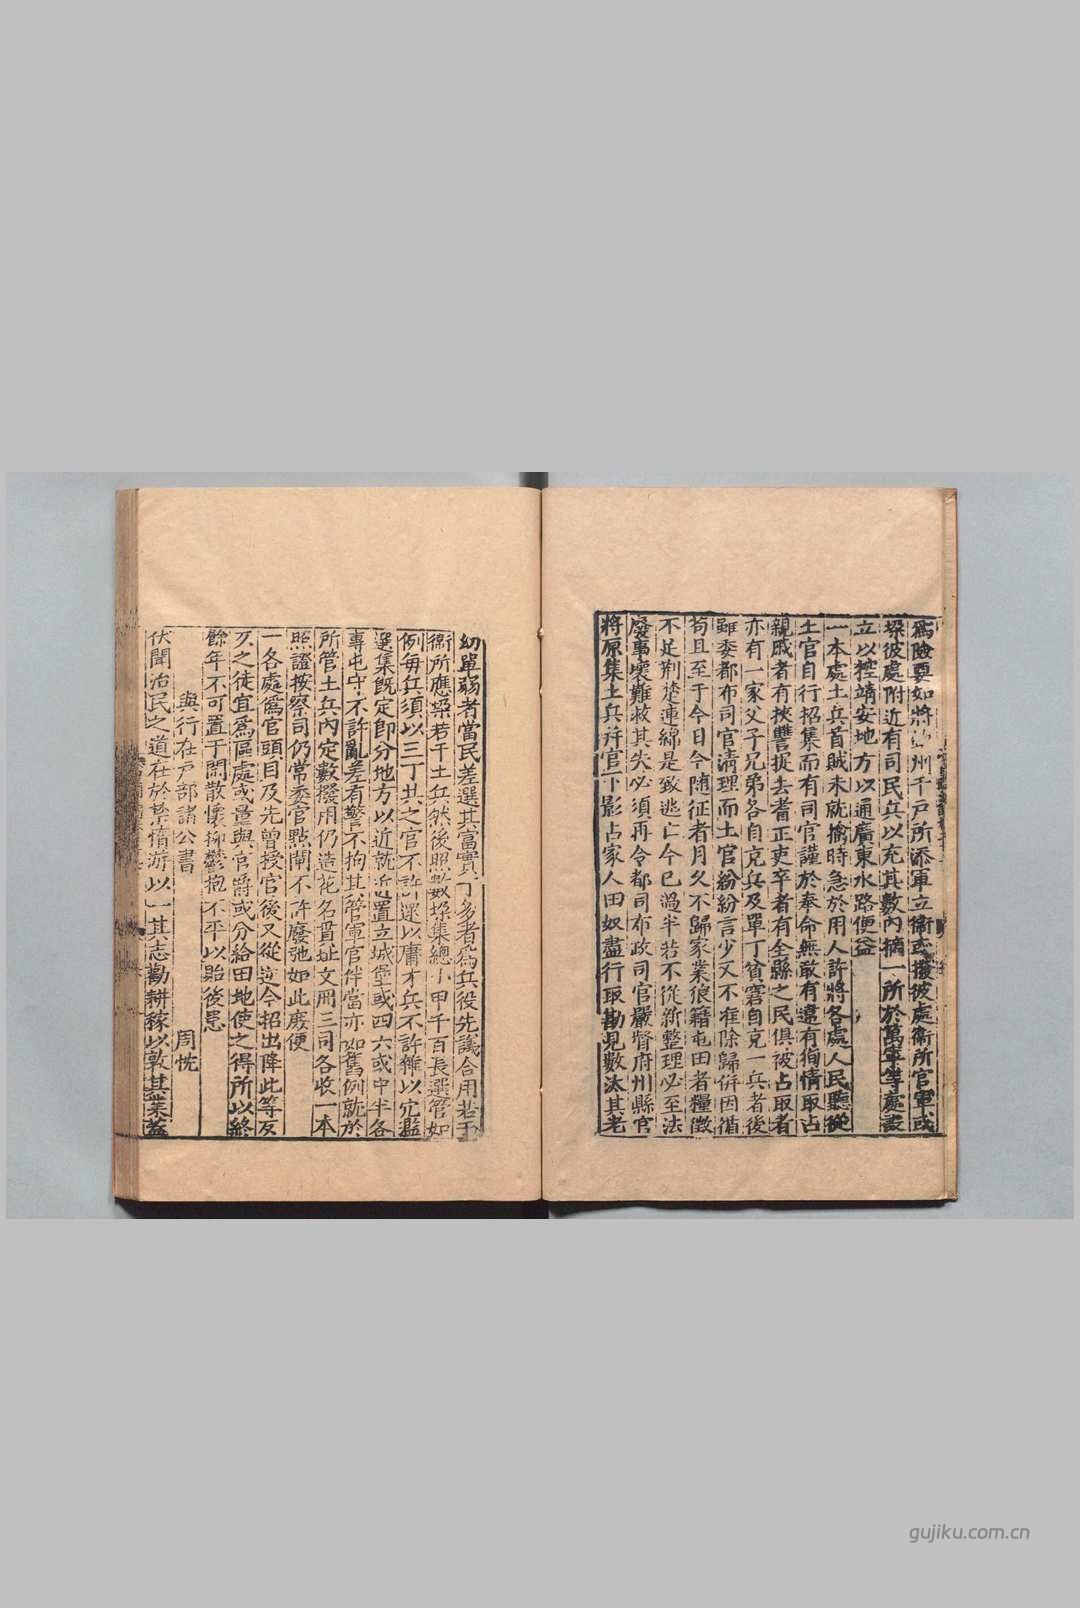 爲險要如將 州千戶所添軍立衞或撥彼處衞所官軍或
垛彼處附近有司民兵以充其數內摘一所於萬軍等處設
立以控靖安地方以通廣東水路便益
一本處土兵首賊未就擒時急於用人許將各處人民聽從
土官自行招集而有司官謹於奉命無敢有違有徇情取占
親戚者有挾讐捉去者正吏卒者有全縣之民俱被占取者
亦有一家父子兄弟各自充兵及單丁貧窘自充一兵者後
雖委都布司官清理而土官紛紛言少又不准除歸併因循
苟且至于今日令隨征者月久不歸家業狼籍屯田者糧徵
不足荆楚連綿是致逃亡今已過半若不從新整理必至法
廢事壞難救其失必須再令都司布政司官嚴督府州縣官
將原集土兵并官下影占家人田奴盡行取勘見數汰其老
幼單弱者當民差選其富實丁多者爲兵役先議合用若干
衞所應垛若干土兵然後照數垛集總小甲千百長選管如
例每兵須以三丁共之官不許選以庸才兵不許雜以宂濫
選集旣定卽分地方以近就近置立城堡或四六或中半各
專屯守不許亂差有警不拘其營軍官伴當亦如舊例就於
所管土兵內定數撥用仍造花名貫址文冊三司各收一本
照證按察司仍常委官點閘不許廢弛如此庶便
一各處爲官頭目及先曾授官後又從逆今招出降此等反
歹之徒宜爲區處或量與官爵或分給田地使之得所以終
餘年不可置于閑散懷抑鬱抱不平以貽後患
與行在戶部諸公書
周忱
伏聞治民之道在於禁惰游以一其志勸耕稼以敦其業蓋
gujiku.com.cn